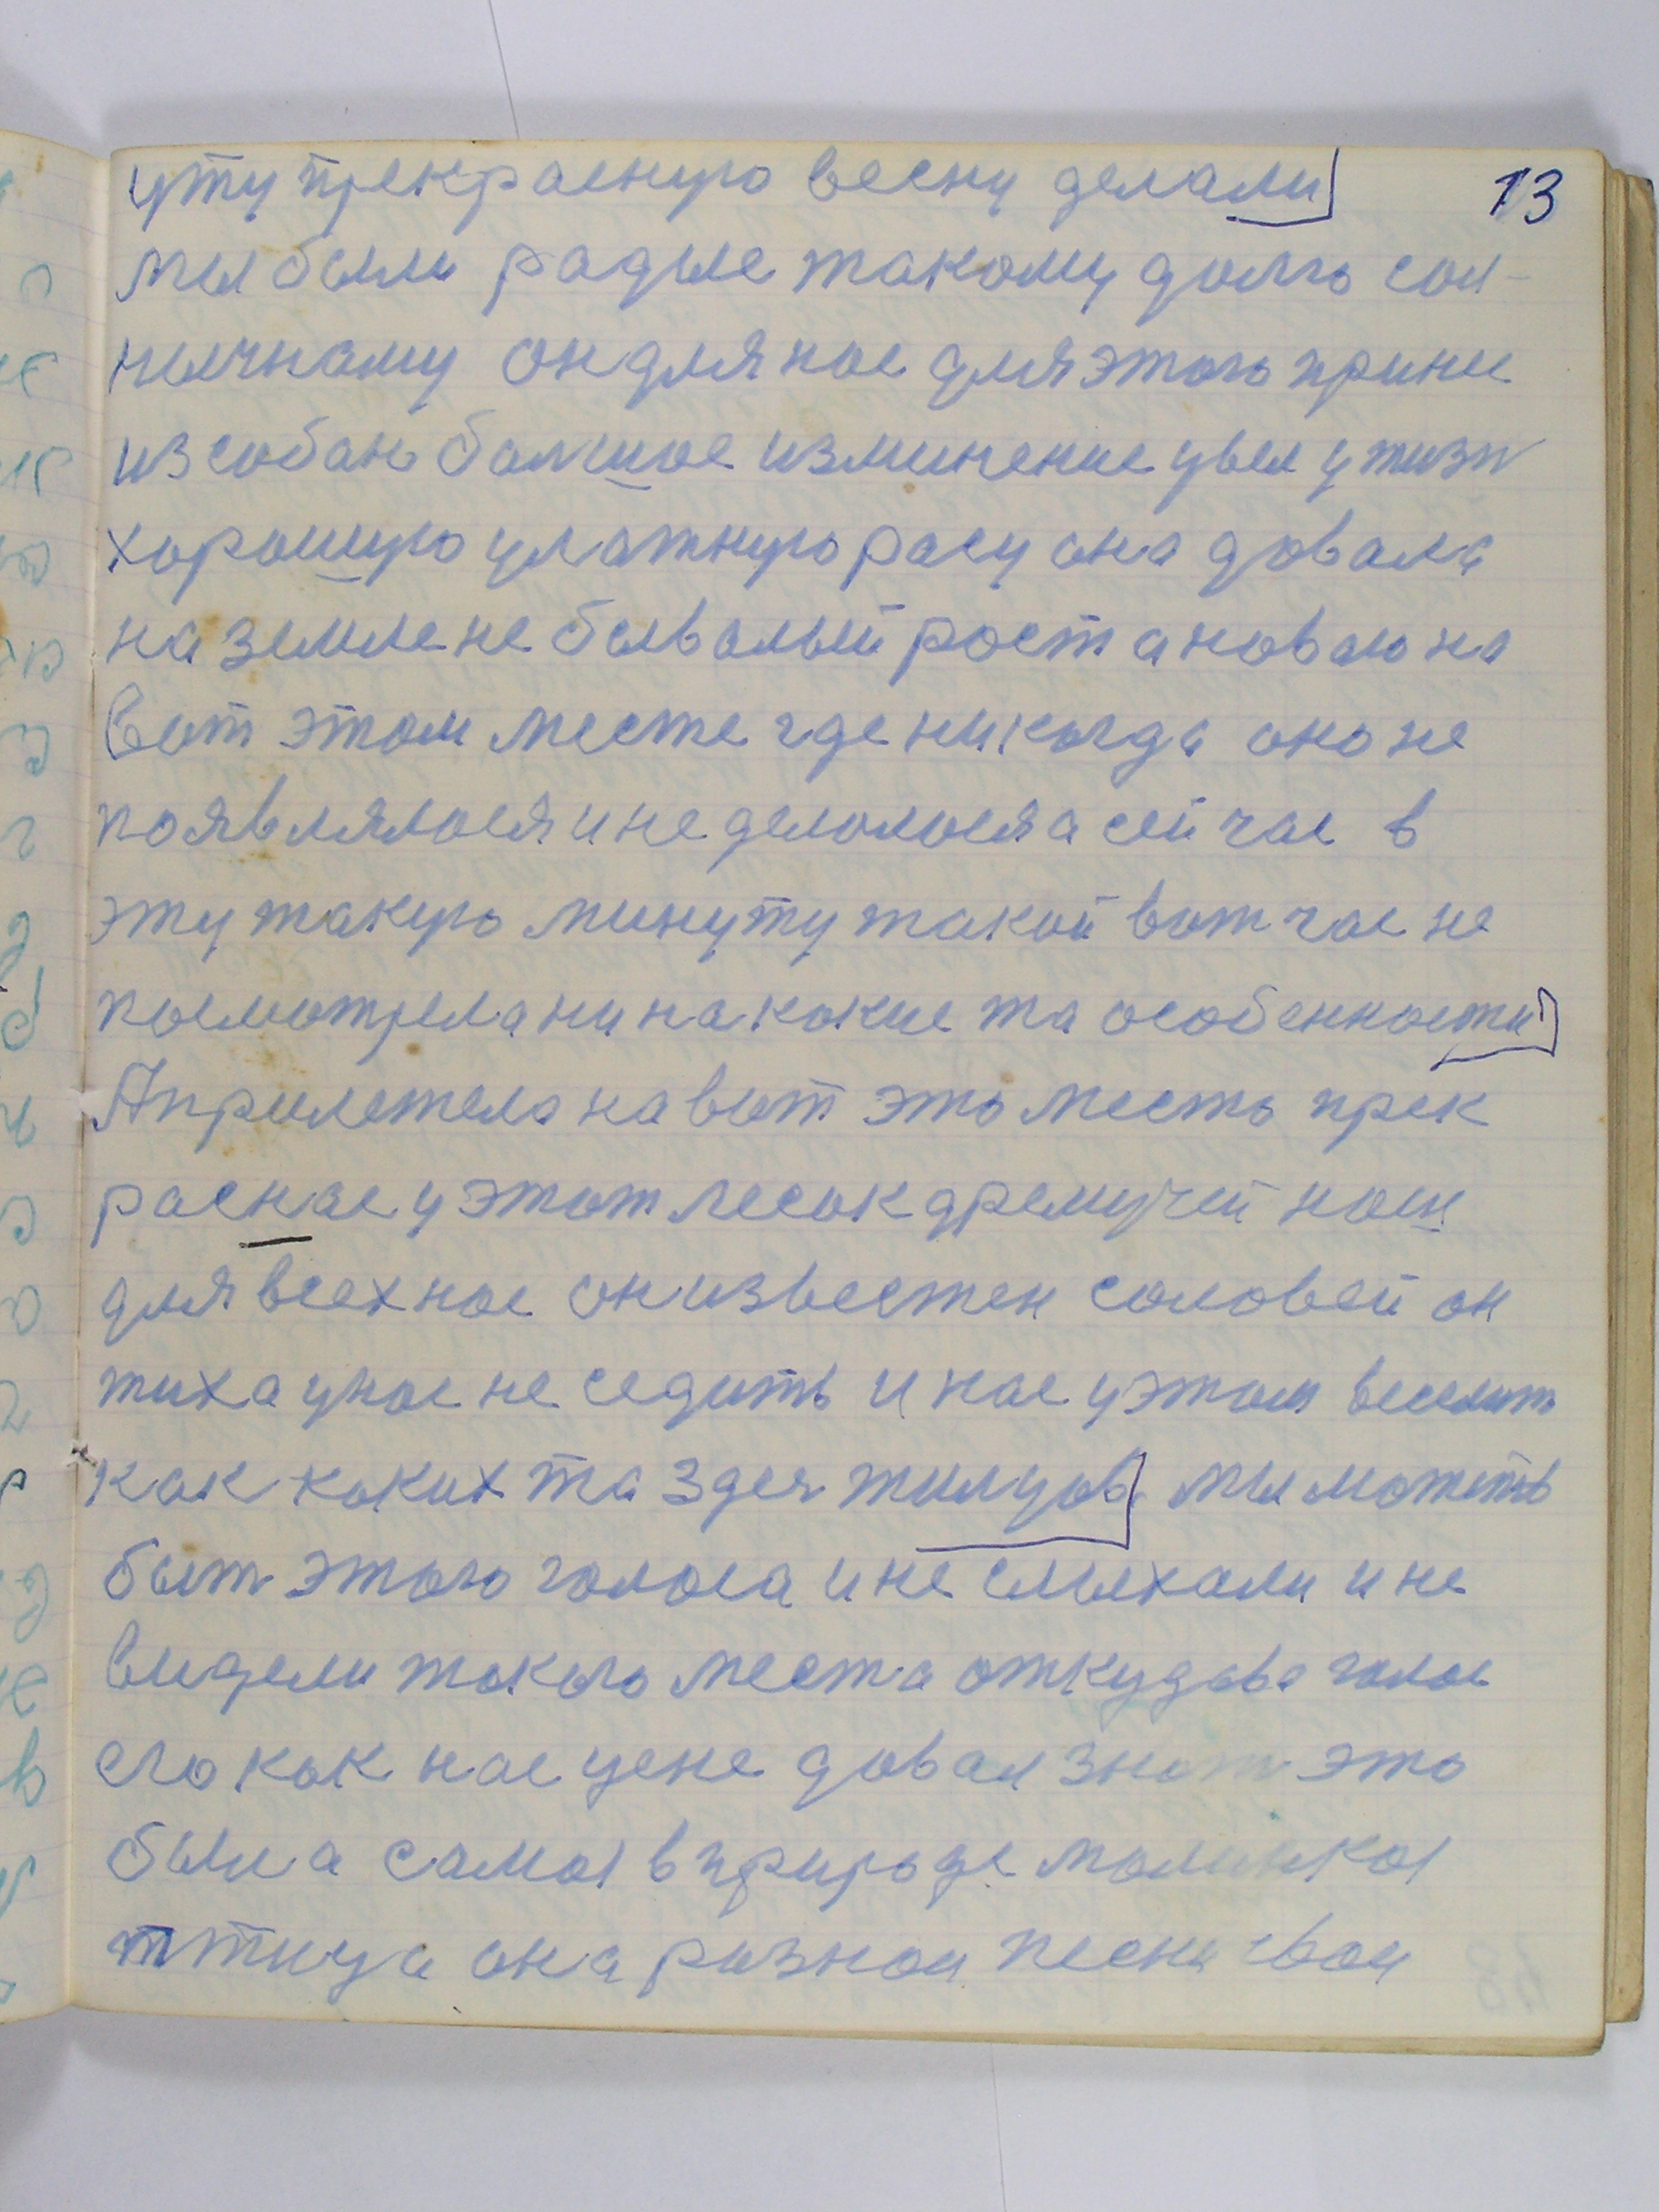 13
уту прекрасную весну делали
мы были радые такому долго сол-
нычнаму он для нас для этого прине
из собаю болшое изминение увел у жизн
хорошую улажную расу она довала
на земле не бывалый рост а новаю на
вот этом месте где никогда оно не
появлялося и не делолося а сейчас в
эту такую минуту такой вот час не
посмотрела ни на какие та особенности
А прилетела на вот это место прек
раснае у этот лесок дремучей наш
для всех нас он известен соловей он
тиха у нас не седить и нас у этом веселить
как каких та здес жилцов мы можеть
быт этого голоса и не слыхали и не
видели такого места откудава голос
его как нас уене довал знат это
была самая в природе малинкая
птица она разнои песни свои